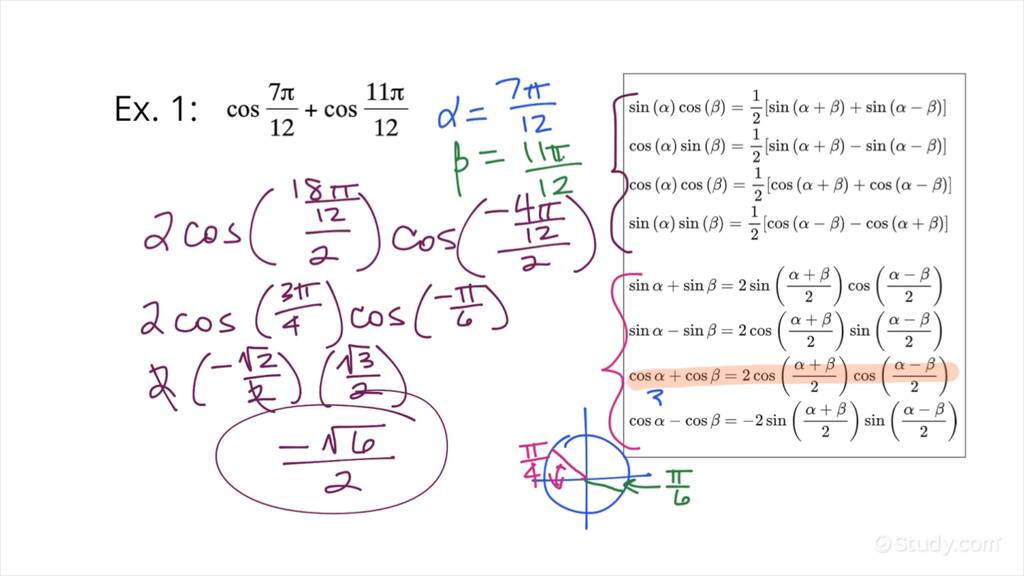 Ex. 1: cos 7π/12 + cos 11π/12
α = 7π/12
β = 11π/12
2cos((18π/12)/2) cos((-4π/12)/2)
2cos(3π/4) cos(-π/6)
2(-√2/2)(√3/2)
-√6/2
sin (α) cos (β) = 1/2[sin (α + β) + sin (α − β)]
cos (α) sin (β) = 1/2[sin (α + β) − sin (α − β)]
cos (α) cos (β) = 1/2[cos (α + β) + cos (α − β)]
sin (α) sin (β) = 1/2[cos (α − β) − cos (α + β)]
sin α + sin β = 2 sin ((α + β)/2) cos ((α − β)/2)
sin α − sin β = 2 cos ((α + β)/2) sin ((α − β)/2)
cos α + cos β = 2 cos ((α + β)/2) cos ((α − β)/2)
3
cos α − cos β = −2 sin ((α + β)/2) sin ((α − β)/2)
π/4
π/6
Study.com